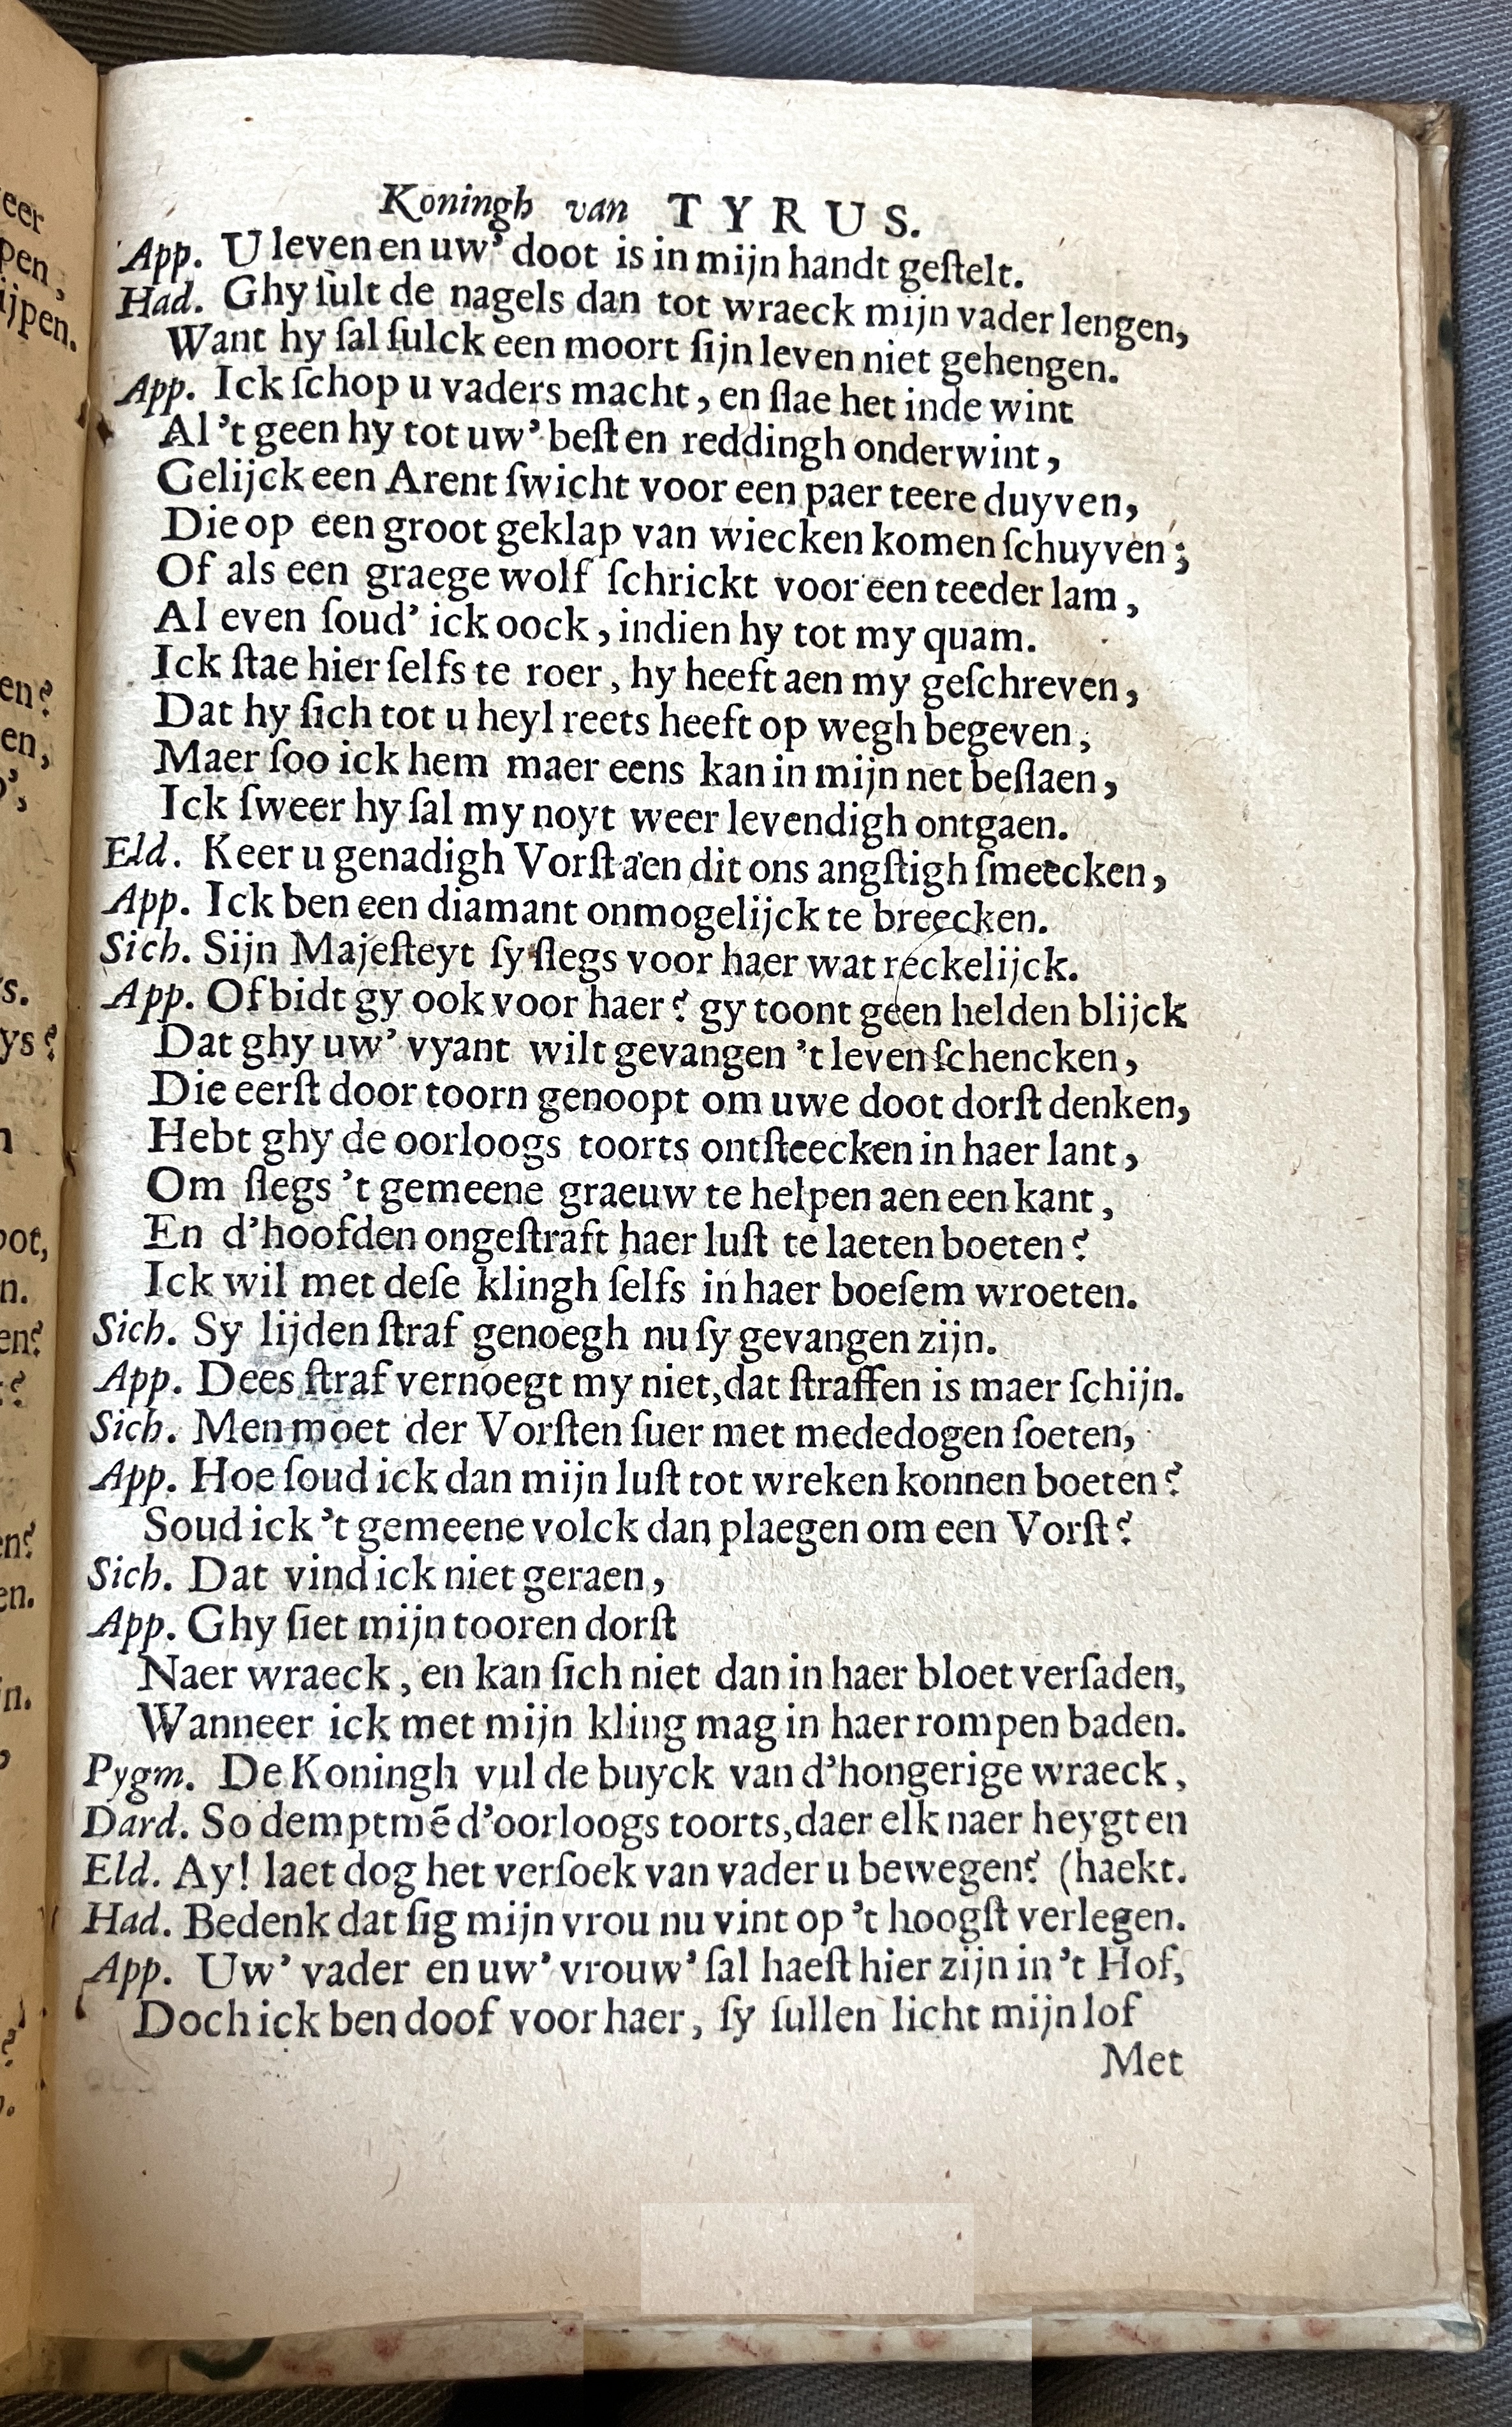 Koningh van TYRUS.
App. U leven en uw' doot is in mijn handt geſtelt.
Had. Ghy ſult de nagels dan tot wraeck mijn vader lengen,
Want hy ſal ſulck een moort ſijn leven niet gehengen.
App. Ick ſchop u vaders macht, en ſlae het inde wint
Al 't geen hy tot uw' beſt en reddingh onderwint,
Gelijck een Arent ſwicht voor een paer teere duyven,
Die op een groot geklap van wiecken komen ſchuyven;
Of als een graege wolf ſchrickt voor een teeder lam,
Al even ſoud' ick oock, indien hy tot my quam.
Ick ſtae hier ſelfs te roer, hy heeft aen my geſchreven,
Dat hy ſich tot u heyl reets heeft op wegh begeven,
Maer ſoo ick hem maer eens kan in mijn net beſlaen,
Ick ſweer hy ſal my noyt weer levendigh ontgaen.
Eld. Keer u genadigh Vorſt aen dit ons angſtigh ſmeecken,
App. Ick ben een diamant onmogelijck te breecken.
Sich. Sijn Majeſteyt ſy ſlegs voor haer wat reckelijck.
App. Of bidt gy ook voor haer? gy toont geen helden blijck
Dat ghy uw' vyant wilt gevangen 't leven ſchencken,
Die eerſt door toorn genoopt om uwe doot dorſt denken,
Hebt ghy de oorloogs toorts ontſteecken in haer lant,
Om ſlegs 't gemeene graeuw te helpen aen een kant,
En d'hoofden ongeſtraft haer luſt te laeten boeten?
Ick wil met deſe klingh ſelfs in haer boeſem wroeten.
Sich. Sy lijden ſtraf genoegh nu ſy gevangen zijn.
App. Dees ſtraf vernoegt my niet, dat ſtraffen is maer ſchijn.
Sich. Men moet der Vorſten ſuer met mededogen ſoeten,
App. Hoe ſoud ick dan mijn luſt tot wreken konnen boeten?
Soud ick 't gemeene volck dan plaegen om een Vorſt?
Sich. Dat vind ick niet geraen,
App. Ghy ſiet mijn tooren dorſt
Naer wraeck, en kan ſich niet dan in haer bloet verſaden,
Wanneer ick met mijn kling mag in haer rompen baden.
Pygm. De Koningh vul de buyck van d'hongerige wraeck,
Dard. So demptmē d'oorloogs toorts, daer elk naer heygt en
Eld. Ay! laet dog het verſoek van vader u bewegen? (haekt.
Had. Bedenk dat ſig mijn vrou nu vint op 't hoogſt verlegen.
App. Uw' vader en uw' vrouw' ſal haeſt hier zijn in 't Hof,
Doch ick ben doof voor haer, ſy ſullen licht mijn lof
Met